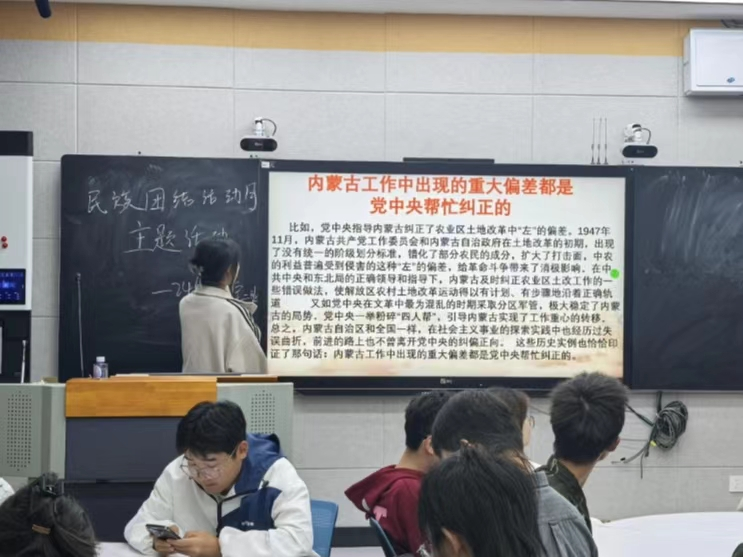 民族团结活动月
主题活动
内蒙古工作中出现的重大偏差都是
党中央帮忙纠正的
比如，党中央指导内蒙古纠正了农业区土地改革中“左”的偏差。1947年
11月，内蒙古共产党工作委员会和内蒙古自治政府在土地改革的初期，出现
了没有统一的阶级划分标准，错化了部分农民的成分，扩大了打击面，中农
的利益普遍受到侵害的这种“左”的偏差，给革命斗争带来了消极影响，在中
共中央和东北局的正确领导和指导下，内蒙古及时纠正农业区土改工作的一
些错误做法，使解放区农村土地改革运动得以有计划、有步骤地沿着正确轨
道 又如党中央在文革中最为混乱的时期采取分区军管，极大稳定了内蒙
古的局势。党中央一举粉碎“四人帮”，引导内蒙古实现了工作重心的转移。
总之，内蒙古自治区和全国一样，在社会主义事业的探索实践中也经历过失
误曲折，前进的路上也不曾离开党中央的纠偏正向。 这些历史实例也恰恰印
证了那句话：内蒙古工作中出现的重大偏差都是党中央帮忙纠正的。